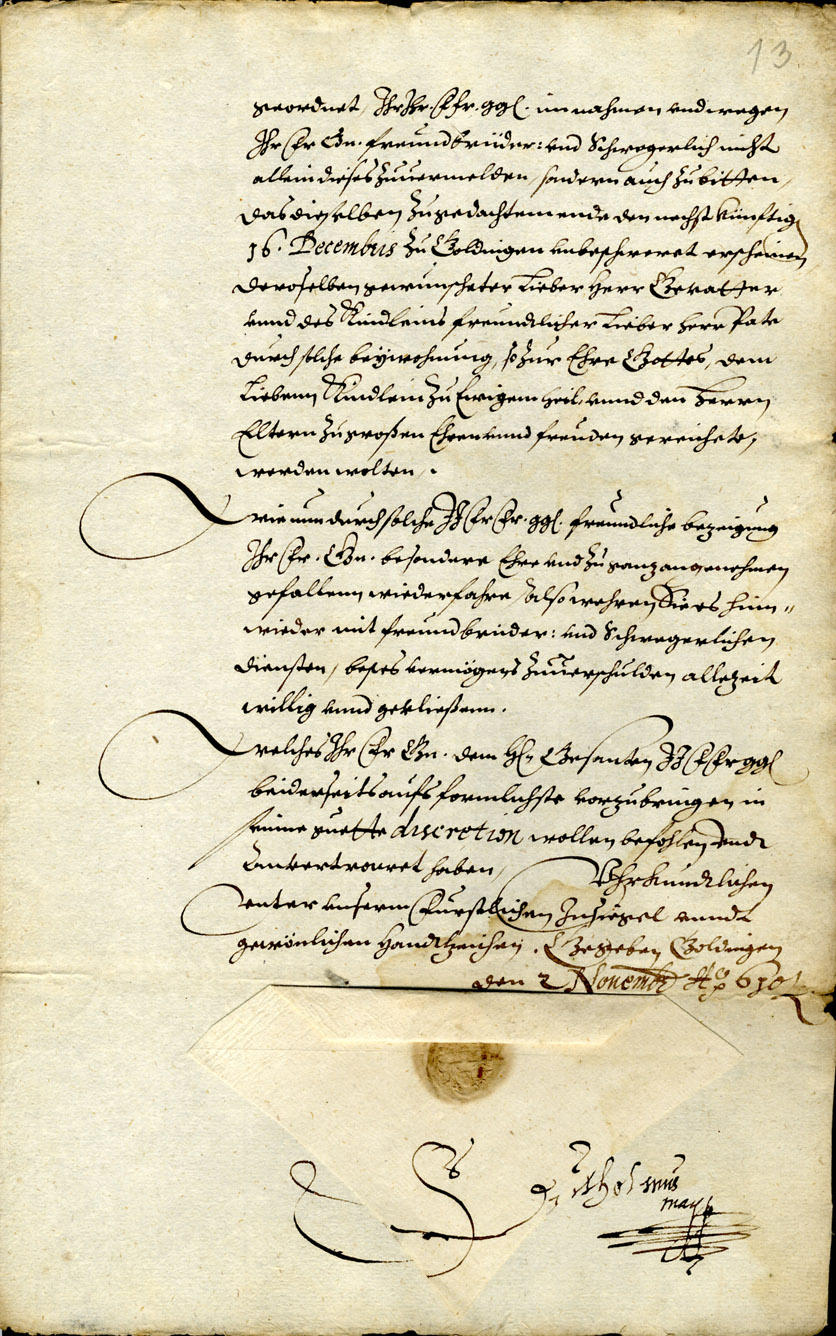 13
geordnet, Ihr Fr. ggl. im nahmen vnd wegen
Ihr Gn. freundbrüder: vnd Schwegerlich nicht
allein dieses zuuermelden, sondern auch zu bitten,
das dieselben zu gedachtem ende den nechst künftig
16. Decembris zu Goldingen vnbeschweret erscheinen
deroselben gewünscheter lieber Herr Gevatter
vnnd des Kindleins freundtlicher lieber Herr Pate
durch solche beÿwohnung, so zur Ehre Gottes, dem
lieben Kindlein zu Ewigem heil, vnnd den Herrn
Eltern zu großen Ehren vnnd freuden gereichete,
werden wolten.
Wie nun durch solche ggl. freundliche bezeigung
Ihr Gn. besondere Ehre vnd zu ganz angenehmen
gefallenn wiederfahre, also wehren Sie es hin=
wieder mit freundbrüder: vnd Schwegerlichen
diensten, bestes vermögens zuuerschulden allezeit
willig vnnd gefließenn.
Welches Ihr Gn. dem Gesanten ggl
beiderseits aufs formlichste vorzubringen in
seine guette discretion wollen befohlen vndt
anvertrauet haben, Vhrkundtlichen
vnter vnserm Fürstlichen Insiegel vnndt
gewönlichen Handtzeichen. Gegeben Goldingen
den 2 Novemb Aõ 610
max